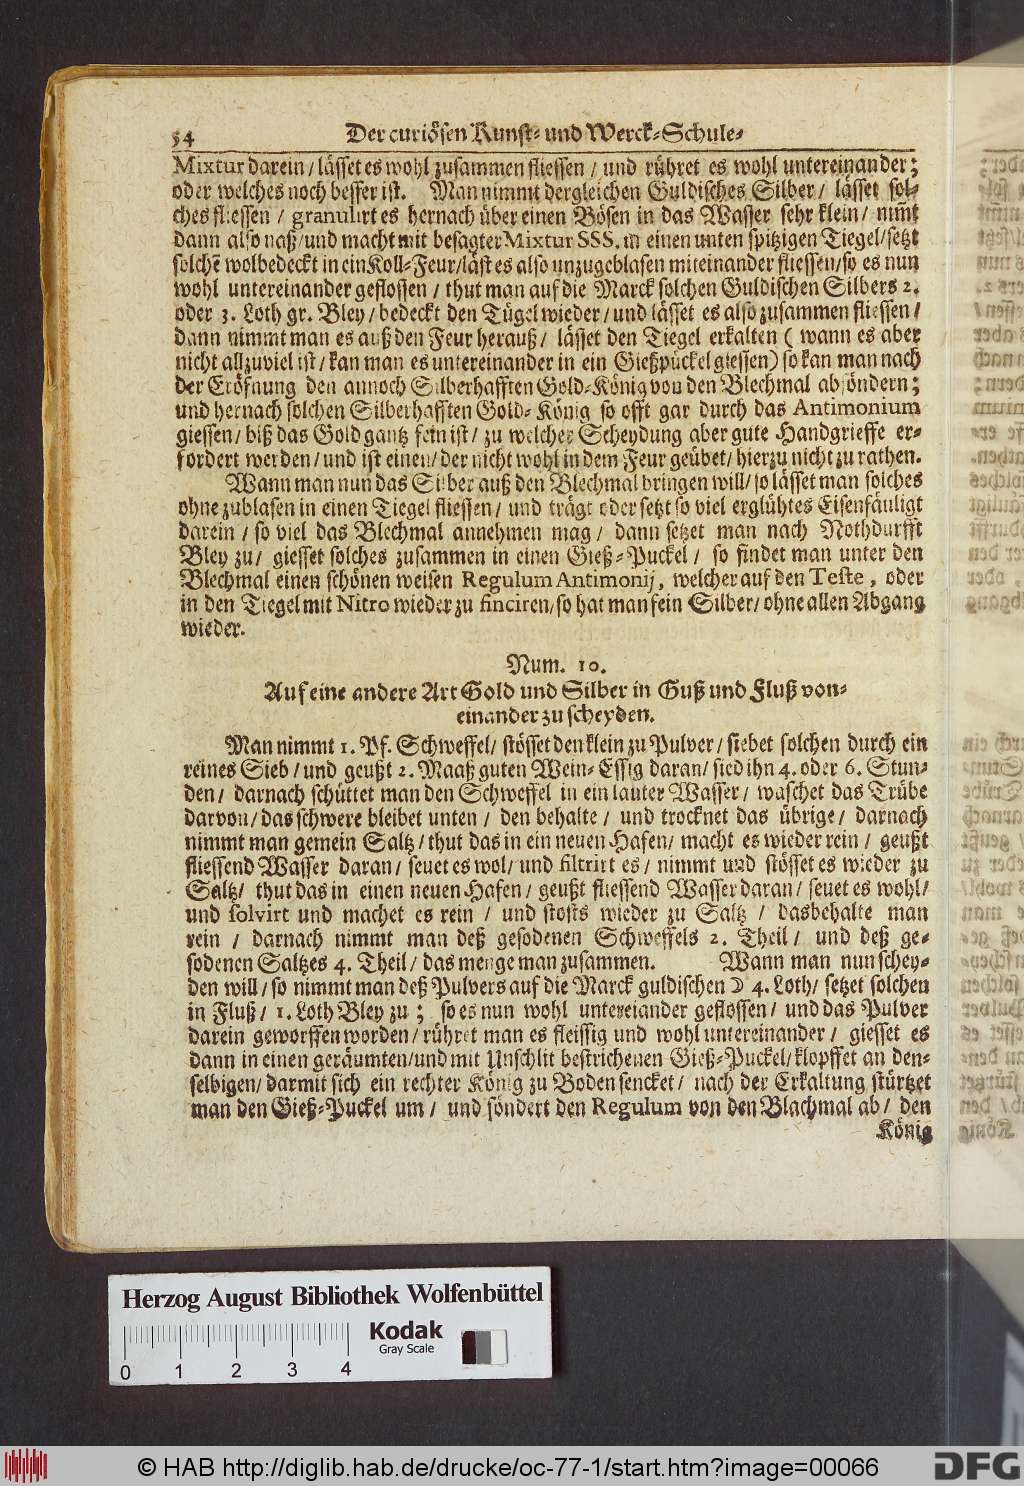 54 Der curiösen Kunst- und Werck-Schule-
Mixtur darein / lässet es wohl zusammen fliessen / und rühret es wohl untereinander;
oder welches noch besser ist. Man nimmt dergleichen Guldisches Silber / lässet sol-
ches fliessen / granulirt es hernach über einen Bösen in das Wasser sehr klein / nim̃t
dann also naß / und macht mit besagter Mixtur SSS. in einen unten spitzigen Tiegel / setzt
solchẽ wolbedeckt in ein Koll-Feur / läst es also unzugeblasen miteinander fliessen / so es nun
wohl untereinander geflossen / thut man auf die Marck solchen Guldischen Silbers 2.
oder 3. Loth gr. Bley / bedeckt den Tügel wieder / und lässet es also zusammen fliessen /
dann nimmt man es auß den Feur herauß / lässet den Tiegel erkalten ( wann es aber
nicht allzuviel ist / kan man es untereinander in ein Gießpückel giessen) so kan man nach
der Eröfnung den annoch Silberhafften Gold-König von den Blechmal absöndern;
und hernach solchen Silberhafften Gold-König so offt gar durch das Antimonium
giessen / biß das Gold gantz fein ist / zu welcher Scheydung aber gute Handgrieffe er-
fordert werden / und ist einen / der nicht wohl in dem Feur geübet / hierzu nicht zu rathen.
Wann man nun das Silber auß den Blechmal bringen will / so lässet man solches
ohne zublasen in einen Tiegel fliessen / und trägt oder setzt so viel erglühtes Eisenfäuligt
darein / so viel das Blechmal annehmen mag / dann setzet man nach Nothdurfft
Bley zu / giesset solches zusammen in einen Gieß-Puckel / so findet man unter den
Blechmal einen schönen weisen Regulum Antimonij, welcher auf den Teste, oder
in den Tiegel mit Nitro wieder zu finciren / so hat man fein Silber / ohne allen Abgang
wieder.
Num. 10.
Auf eine andere Art Gold und Silber in Guß und Fluß von-
einander zu scheyden.
Man nimmt 1. Pf. Schweffel / stösset den klein zu Pulver / siebet solchen durch ein
reines Sieb / und geußt 2. Maaß guten Wein-Essig daran / sied ihn 4. oder 6. Stun-
den / darnach schüttet man den Schweffel in ein lauter Wasser / waschet das Trübe
darvon / das schwere bleibet unten / den behalte / und trocknet das übrige / darnach
nimmt man gemein Saltz / thut das in ein neuen Hafen / macht es wieder rein / geußt
fliessend Wasser daran / seuet es wol / und filtrirt es / nimmt und stösset es wieder zu
Saltz / thut das in einen neuen Hafen / geußt fliessend Wasser daran / seuet es wohl /
und solvirt und machet es rein / und stosts wieder zu Saltz / das behalte man
rein / darnach nimmt man deß gesodenen Schweffels 2. Theil / und deß ge-
sodenen Saltzes 4. Theil / das menge man zusammen. Wann man nun schey-
den will / so nimmt man deß Pulvers auf die Marck guldischen ☽ 4. Loth / setzet solchen
in Fluß / 1. Loth Bley zu; so es nun wohl untereiander geflossen / und das Pulver
darein geworffen worden / rühret man es fleissig und wohl untereinander / giesset es
dann in einen geräumten / und mit Unschlit bestrichenen Gieß-Puckel / klopffet an den-
selbigen / darmit sich ein rechter König zu Boden sencket / nach der Erkaltung stürtzet
man den Gieß-Puckel um / und söndert den Regulum von den Blachmal ab / den
König
Herzog August Bibliothek Wolfenbüttel
Kodak
Gray Scale
0 1 2 3 4
© HAB http://diglib.hab.de/drucke/oc-77-1/start.htm?image=00066
DFG